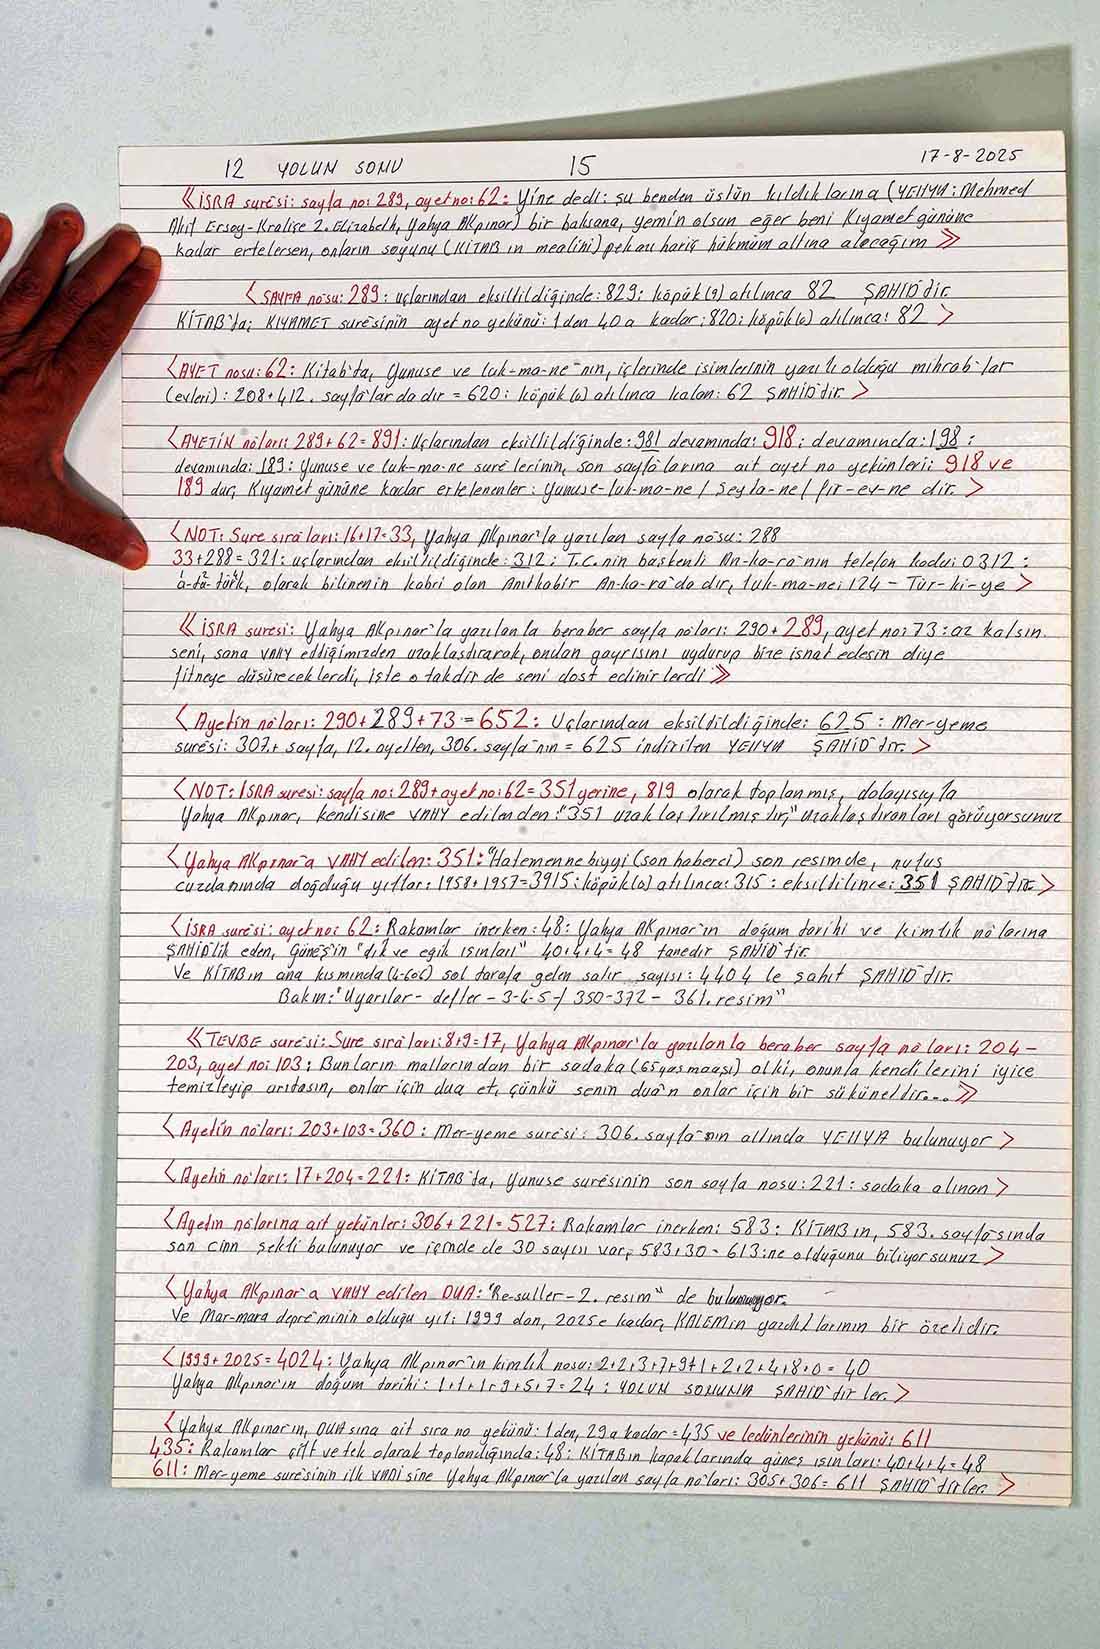 12 YOLUN SONU 15 17-8-2025
《İSRA suresi: sayfa no: 289, ayet no: 62: Yine dedi: şu benden üstün kıldıklarına (YEHYA: Mehmed
Akif Ersoy-Kraliçe 2. Elizabeth, Yahya AKpınar) bir baksana, yemin olsun eğer beni Kıyamet gününe
kadar ertelersen, onların soyunu (KİTAB ın mealini) pek azı hariç hükmüm altına alacağım》
<SAYFA no'su: 289: uçlarından eksiltildiğinde: 829: köpük(9) atılınca 82 ŞAHİD'dir.
KİTAB'ta; KIYAMET suresinin ayet no yekünü: 1 den 40 a kadar: 820: köpük(0) atılınca: 82>
<AYET nosu: 62: Kitab'ta, Yunuse ve luk-ma-ne'nin, içlerinde isimlerinin yazılı olduğu mihrab'lar
(evleri): 208+412. sayfa'lar da dır = 620: köpük (0) atılınca kalan: 62 ŞAHİD'dir.>
<AYETİN no'ları: 289+62=891: Uçlarından eksiltildiğinde: 981 devamında: 918: devamında: 198:
devamında: 189: Yunuse ve luk-ma-ne sure'lerinin, son sayfa'larına ait ayet no yekünleri: 918 ve
189 dur, Kıyamet gününe kadar ertelenenler: Yunuse-luk-ma-ne / Şeyta-ne / fir-ev-ne dir.>
<NOT: Sure sıra'ları: 16+17=33, Yahya AKpınar'la yazılan sayfa no'su: 288
33+288=321: uçlarından eksiltildiğinde: 312: T.C.nin başkenti An-ka-ra'nın telefon kodu: 0312:
a-ta-türk, olarak bilinenin kabri olan Anıtkabir An-ka-ra'da dır, luk-ma-ne: 124 - Tür-ki-ye>
《İSRA suresi: Yahya AKpınar'la yazılanla beraber sayfa no'ları: 290+289, ayet no: 73: az kalsın
seni, sana VAHY ettiğimizden uzaklaştırarak, ondan gayrısını uydurup bize isnat edesin diye
fitneye düşüreceklerdi, işte o takdirde seni dost edinirlerdi》
<Ayetin no'ları: 290+289+73=652: Uçlarından eksiltildiğinde: 625: Mer-yeme
suresi: 307. sayfa, 12. ayetten, 306. sayfa'nın = 625 indirilen YEHYA ŞAHİD'dir.>
<NOT: İSRA suresi: sayfa no: 289+ayet no: 62=351 yerine, 819 olarak toplanmış, dolayısıyla
Yahya AKpınar, kendisine VAHY edilenden: "351 uzaklaştırılmıştır," uzaklaştıranları görüyorsunuz
<Yahya AKpınar'a VAHY edilen: 351: "Hatemennebiyyi (son haberci) son resimde, nufus
cuzdanında doğduğu yıllar: 1958+1957=3915: köpük(9) atılınca: 315: eksiltilince: 351 ŞAHİD'dir.>
<İSRA suresi: ayet no: 62: Rakamlar inerken: 48: Yahya AKpınar'ın doğum tarihi ve kimlik no'larına
ŞAHİD'lik eden, Güneş'in "dik ve eğik ışınları" 40+4+4=48 tanedir ŞAHİD'tir.
Ve KİTAB ın ana kısmında (4-606) sol tarafa gelen satır sayısı: 4404 le şahit ŞAHİD'dir.
Bakın: "Uyarılar- defter - 3-4-5-/ 350-372 - 361. resim"
《TEVBE suresi: Sure sıra'ları: 8+9=17, Yahya AKpınar'la yazılanla beraber sayfa no'ları: 204-
203, ayet no: 103: Bunların mallarından bir sadaka (65 yaş maaşı) al ki, onunla kendilerini iyice
temizleyip arıtasın, onlar için dua et, çünkü senin dua'n onlar için bir sükünettir....》
<Ayetin no'ları: 203+103=360: Mer-yeme suresi: 306. sayfa'sının altında YEHYA bulunuyor>
<Ayetin no'ları: 17+204=221: KİTAB'ta, Yunuse suresinin son sayfa nosu: 221: sadaka alınan>
<Ayetin no'larına ait yekünler: 306+221=527: Rakamlar inerken: 583: KİTAB ın, 583. sayfa'sında
son cinn şekli bulunuyor ve içinde de 30 sayısı var, 583+30=613: ne olduğunu biliyorsunuz>
<Yahya AKpınar'a VAHY edilen DUA: "Re-suller - 2. resim" de bulunuyor.
Ve Mar-mara depreminin olduğu yıl: 1999 dan, 2025 e kadar, KALEMin yazdıklarının bir özetidir.
<1999+2025=4024: Yahya AKpınar'ın kimlik nosu: 2+2+3+7+9+1+2+2+4+8+0=40
Yahya AKpınar'ın doğum tarihi: 1+1+1+9+5+7=24: YOLUN SONUNA ŞAHİD'dir ler.>
<Yahya AKpınar'ın, DUA sına ait sıra no yekünü: 1 den, 29 a kadar=435 ve ledünlerinin yekünü: 611
435: Rakamlar çift ve tek olarak toplandığında: 48: KİTAB ın kapaklarında güneş ışınları: 40+4+4=48
611: Mer-yeme suresinin ilk VAHY'sine Yahya AKpınar'la yazılan sayfa no'ları: 305+306=611 ŞAHİD'dirler.>